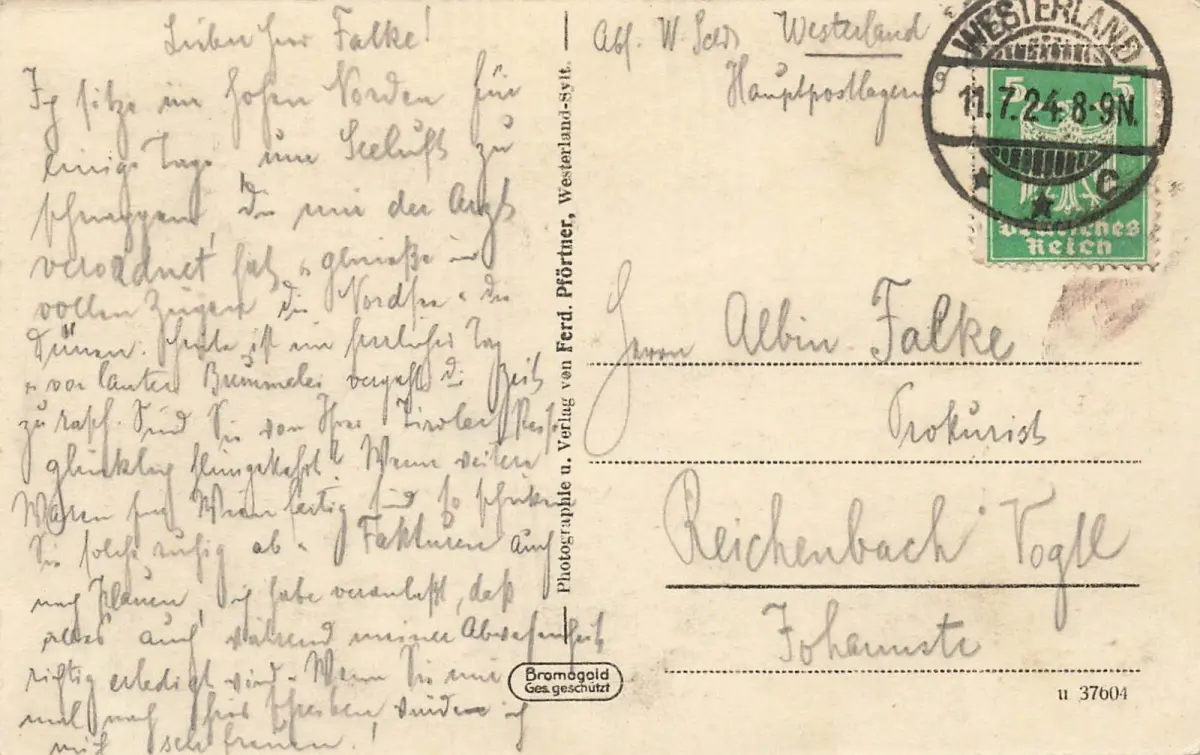 Lieber Herr Falke!
Ich sitze im hohen Norden für
einige Tage um Seeluft zu
schnappen, die mir der Arzt
verordnet hat u. genieße in
vollen Zügen die Nordsee u. die
Dünen. Heute ist ein herrlicher Tag
u. vor lauter Bummelei vergeht die Zeit
zu rasch. Sind Sie von Ihrer Tiroler Reise
glücklich heimgekehrt? Wenn weitere
Waren für Wien fertig sind so schicken
Sie solche ruhig ab u. Fakturen auch
nach Plauen, ich habe veranlaßt, daß
alles auch während meiner Abwesenheit
richtig erledigt wird. Wenn Sie mir
mal nach hier schreiben würden
mich sehr freuen!
Photographie u. Verlag von Ferd. Pförtner, Westerland-Sylt.
Bromogold
Ges. geschützt
Abs. W. Westerland
Hauptpostlagernd
WESTERLAND
11.7.24.8-9N.
C
5 5
Deutsches
Reich
Herrn Albin Falke
Prokurist
Reichenbach i. Vogtl
Johannstr
u 37604